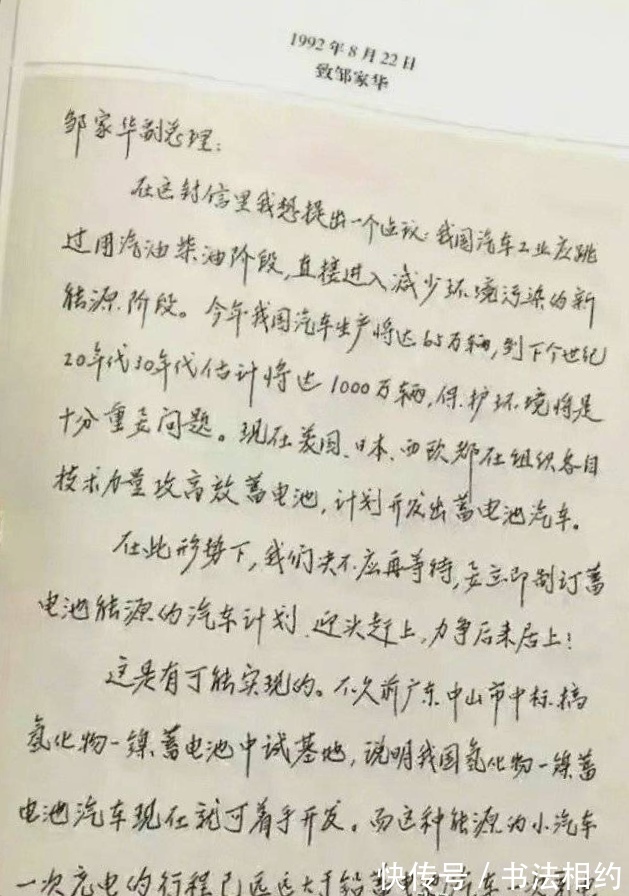 1992年8月22日
致邹家华
邹家华副总理：
在这封信里我想提出一个建议：我国汽车工业应跳
过用汽油柴油阶段，直接进入减少环境污染的新
能源阶段。今年我国汽车生产将达65万辆，到下个世纪
20年代30年代估计将达1000万辆，保护环境将是
十分重要问题。现在美国、日本、西欧都在组织各自
技术力量攻高效蓄电池，计划开发出蓄电池汽车。
在此形势下，我们决不应再等待，要立即制订蓄
电池能源的汽车计划、迎头赶上，力争后来居上！
这是有可能实现的。不久前广东中山市中标搞
氢化物—镍蓄电池中试基地，说明我国氢化物—镍蓄
电池汽车现在就可着手开发。而这种能源为小汽车
一次充电的行程已远远大于铅蓄
快传号/书法相约